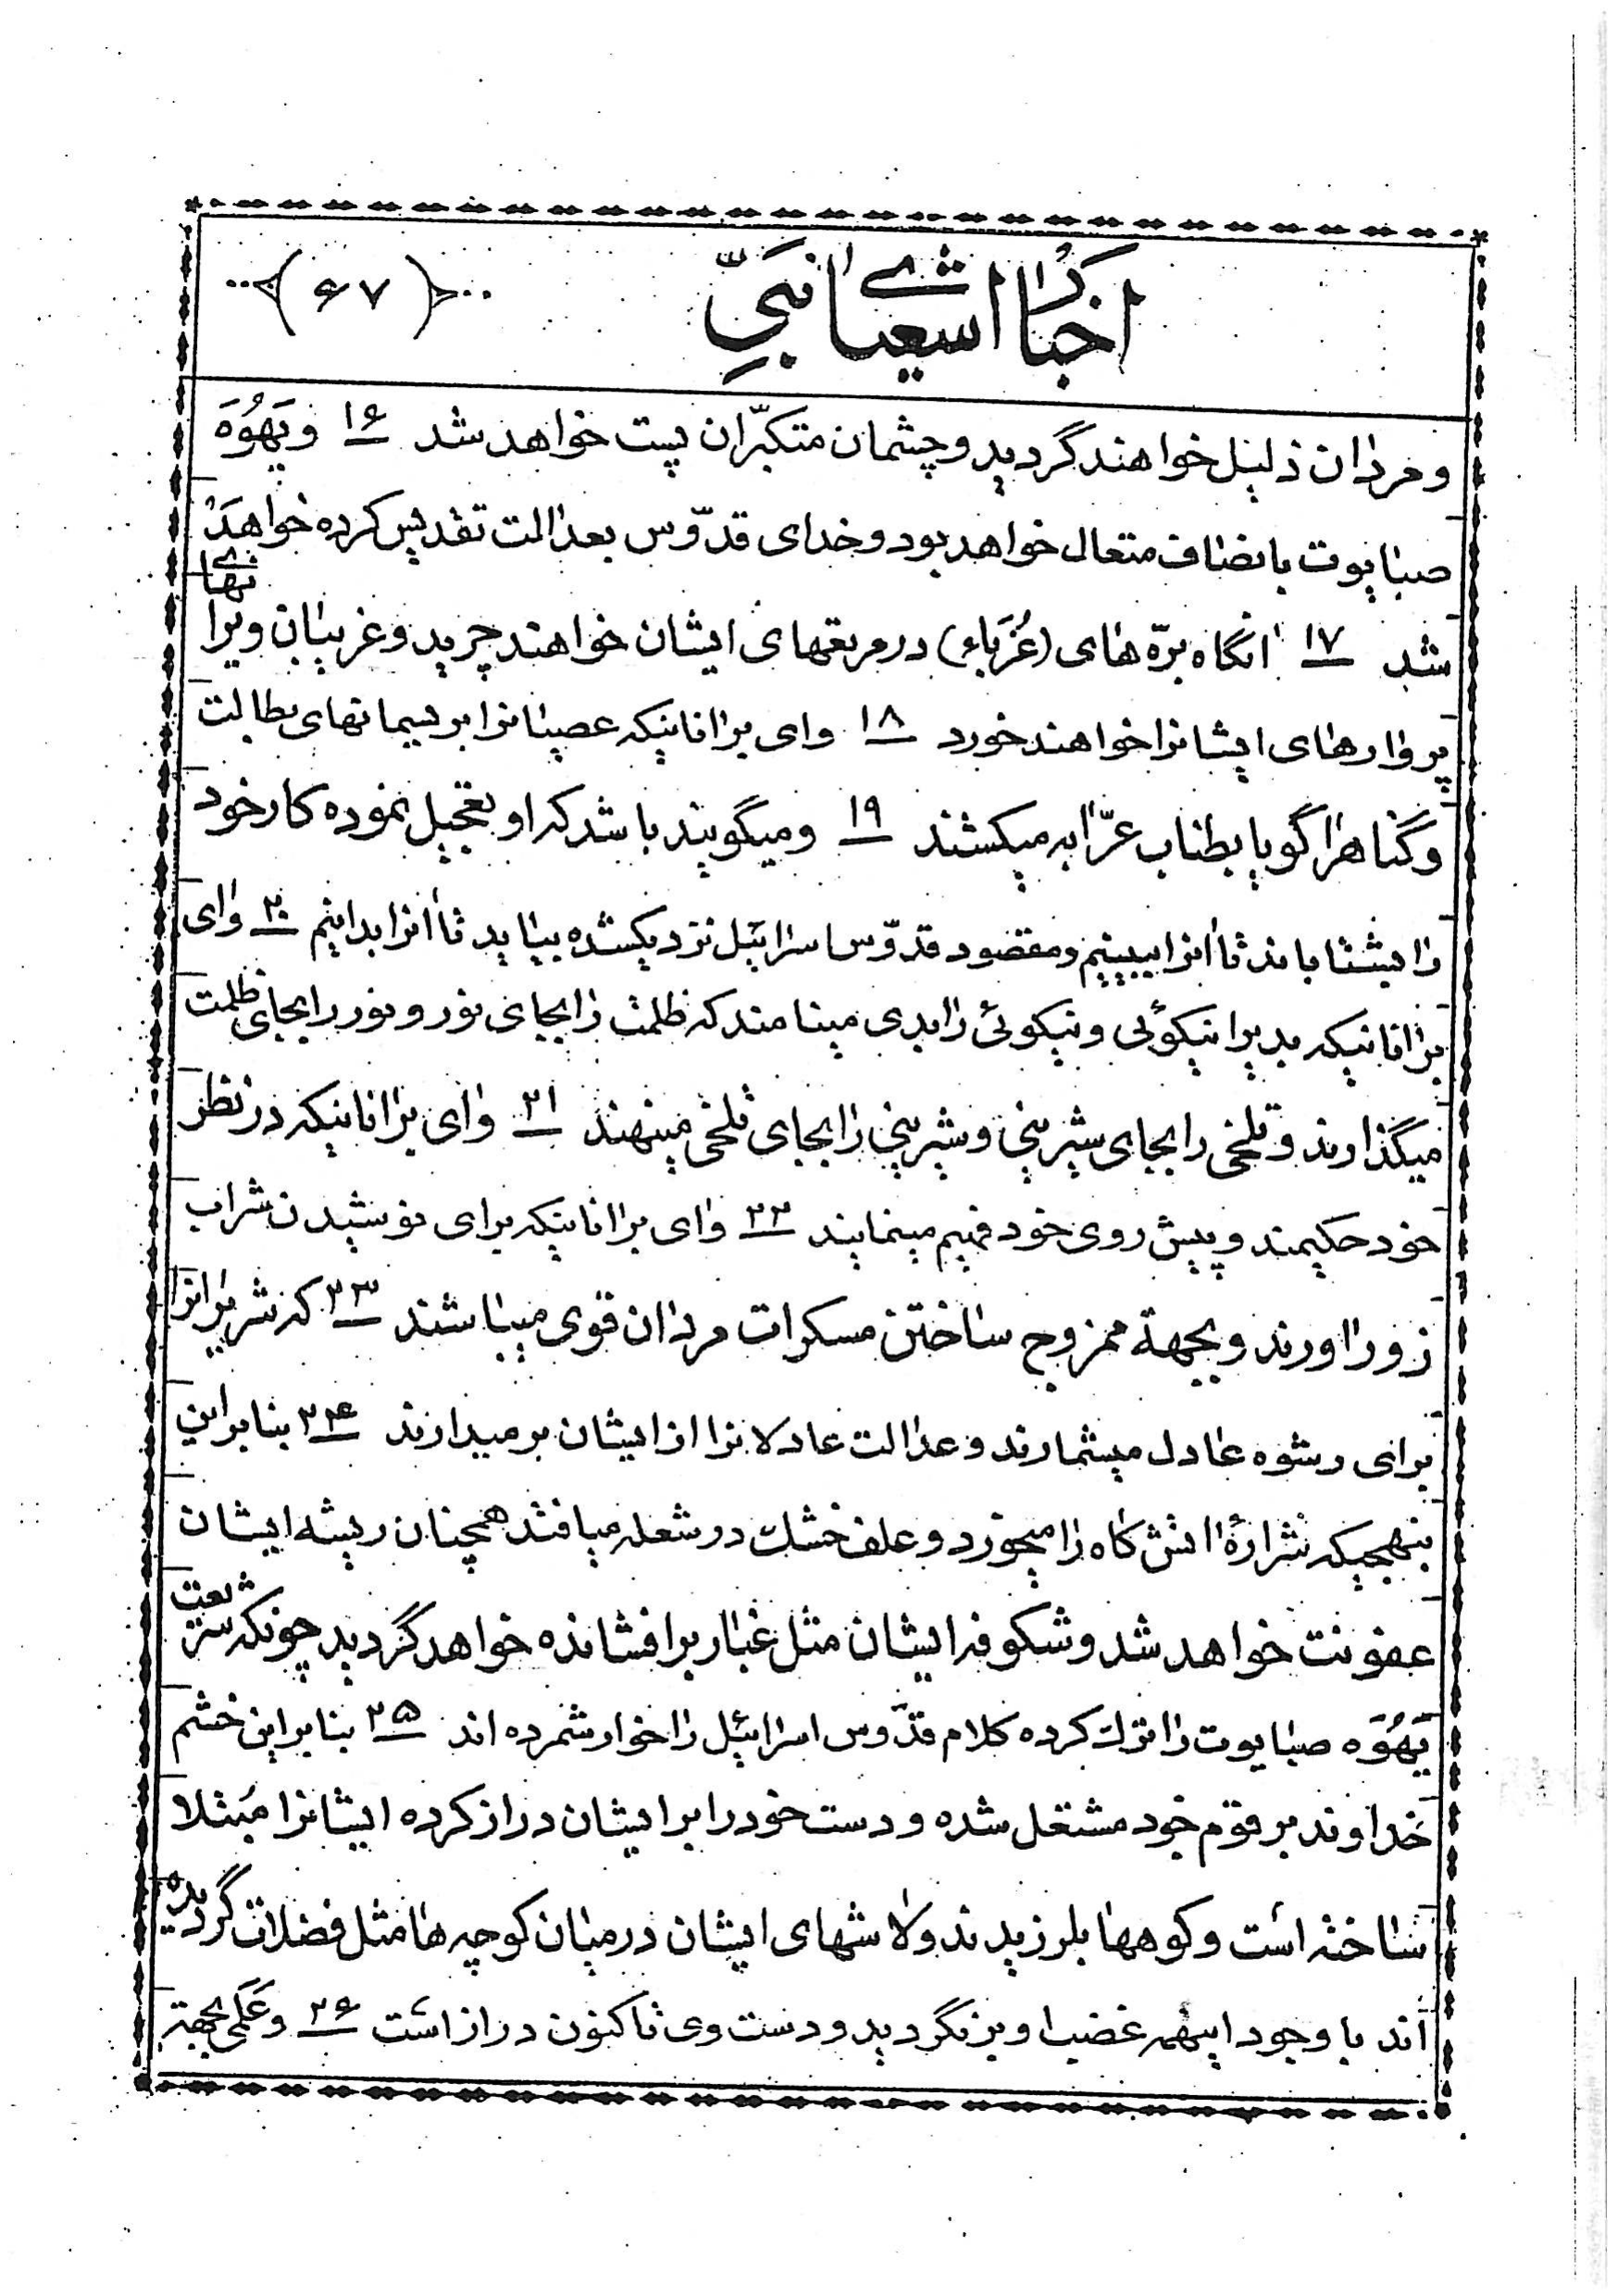 اخبار اشعیا نبیّ (۶۷)
و مردان ذلیل خواهند گردید و چشمان متکبّران پست خواهد شد ۱۶ و یَهُوَه
صبایوت بانصاف متعال خواهد بود و خدای قدّوس بعدالت تقدیس کرده خواهد
شد ۱۷ انگاه برّه‌های (غُرَباء) در مرتعهای ایشان خواهند چرید و غریبان ویرانهای
پروارهای ایشانرا خواهند خورد ۱۸ وای برانانیکه عصیانرا بریسمانهای بطالت
و گناهرا گویا بطناب عرّابه میکشند ۱۹ و میگویند باشد که او تعجیل نموده کار خود
را بشتاباند تا انرا ببینیم و مقصود قدّوس اسرائیل نزدیکشده بیاید تا انرا بدانیم ۲۰ وای
برانانیکه بدیرا نیکوئی و نیکوئی را بدی مینامند که ظلمت را بجای نور و نور را بجای ظلمت
میگذارند و تلخی را بجای شیرینی و شیرینی را بجای تلخی مینهند ۲۱ وای برانانیکه در نظر
خود حکیمند و پیش روی خود فهیم مینمایند ۲۲ وای برانانیکه برای نوشیدن شراب
زوراورند و بجهة ممزوج ساختن مسکرات مردان قوی میباشند ۲۳ که شریرانرا
برای رشوه عادل میشمارند و عدالت عادلانرا از ایشان برمیدارند ۲۴ بنابراین
بنهجیکه شرارهٔ اتش کاه را میخورد و علف خشک در شعله میافتد همچنان ریشه ایشان
عفونت خواهد شد و شکوفه ایشان مثل غبار برافشانده خواهد گردید چونکه شریعت
یَهُوَه صبایوت را ترک کرده کلام قدّوس اسرائیل را خوار شمرده اند ۲۵ بنابراین خشم
خداوند بر قوم خود مشتعل شده و دست خود را بر ایشان دراز کرده ایشانرا مُبتلا
ساخته است و کوهها بلرزیدند و لاشهای ایشان در میان کوچه‌ها مثل فضلات گردیده
اند با وجود اینهمه غضب او برنگردید و دست وی تا کنون دراز است ۲۶ و عَلَمی بجهة